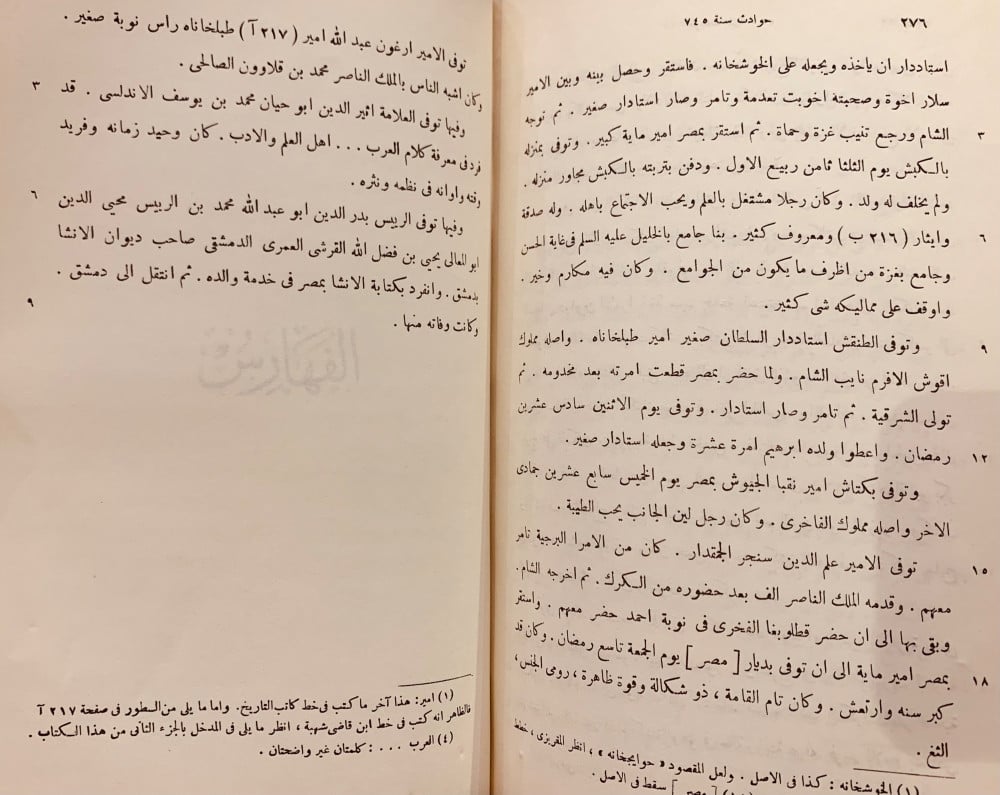 ٢٧٦
حوادث سنة ٧٤٥
استاددار ان ياخذه ويجعله على الخوشخانه . فاستقر وحصل بينه وبين الامير
سلار اخوة وصحبته اخوبت تعدمة وتامر وصار استادار صغير . ثم توجه
٣ الشام ورجع تنيب غزة وحماة . ثم استقر بمصر امير ماية كبير . وتوفى بمنزله
بالكبش يوم الثلثا ثامن ربيع الاول . ودفن بتربته بالكبش مجاور منزله .
ولم يخلف له ولد . وكان رجلا مشتغل بالعلم ويحب الاجتماع باهله . وله صدقة
٦ وايثار ( ٢١٦ ب ) ومعروف كثير . بنا جامع بالخليل عليه السلم فى غاية الحسن
وجامع بغزة من اظرف ما يكون من الجوامع . وكان فيه مكارم وخير .
واوقف على مماليكه شى كثير .
٩ وتوفى الطنقش استاددار السلطان صغير امير طبلخاناه . واصله مملوك
اقوش الافرم نايب الشام . ولما حضر بمصر قطعت امرته بعد مخدومه . ثم
تولى الشرقية . ثم تامر وصار استادار . وتوفى يوم الاثنين سادس عشرين
١٢ رمضان . واعطوا ولده ابرهيم امرة عشرة وجعله استادار صغير .
وتوفى بكتاش امير نقبا الجيوش بمصر يوم الخميس سابع عشرين جمادى
الاخر واصله مملوك الفاخرى . وكان رجل لين الجانب يحب الطيبة .
١٥ توفى الامير علم الدين سنجر الجمقدار . كان من الامرا البرجية تامر
معهم . وقدمه الملك الناصر الف بعد حضوره من الكرك . ثم اخرجه الشام .
وبقى بها الى ان حضر قطلوبغا الفخرى فى نوبة احمد حضر معهم . واستقر
١٨ بمصر امير ماية الى ان توفى بديار [ مصر ] يوم الجمعة تاسع رمضان . وكان قد
كبر سنه وارتعش . وكان تام القامة ، ذو شكالة وقوة ظاهرة ، رومى الجنس ،
الثغ .
(١) الخوشخانه : كذا فى الاصل . ولعل المقصود « حوايجخانه » ، انظر المقريزى ، خطط
[ مصر ] سقط فى الاصل .
توفى الامير ارغون عبد الله امير ( ٢١٧ آ ) طبلخاناه راس نوبة صغير .
وكان اشبه الناس بالملك الناصر محمد بن قلاوون الصالحى .
٣ وفيها توفى العلامة اثير الدين ابو حيان محمد بن يوسف الاندلسى . قد
فرد فى معرفة كلام العرب . . . اهل العلم والادب . كان وحيد زمانه وفريد
وقته واوانه فى نظمه ونثره .
٦ وفيها توفى الرييس بدر الدين ابو عبد الله محمد بن الرييس محيى الدين
ابو المعالى يحيى بن فضل الله القرشى العمرى الدمشقى صاحب ديوان الانشا
بدمشق . وانفرد بكتابة الانشا بمصر فى خدمة والده . ثم انتقل الى دمشق .
٩ وكانت وفاته منها .
الفهارس
(١) امير : هذا آخر ما كتب فى خط كاتب التاريخ . واما ما يلى من السطور فى صفحة ٢١٧ آ
فالظاهر انه كتب فى خط ابن قاضى شهبة ، انظر ما يلى فى المدخل بالجزء الثانى من هذا الكتاب .
(٤) العرب . . . : كلمتان غير واضحتان .